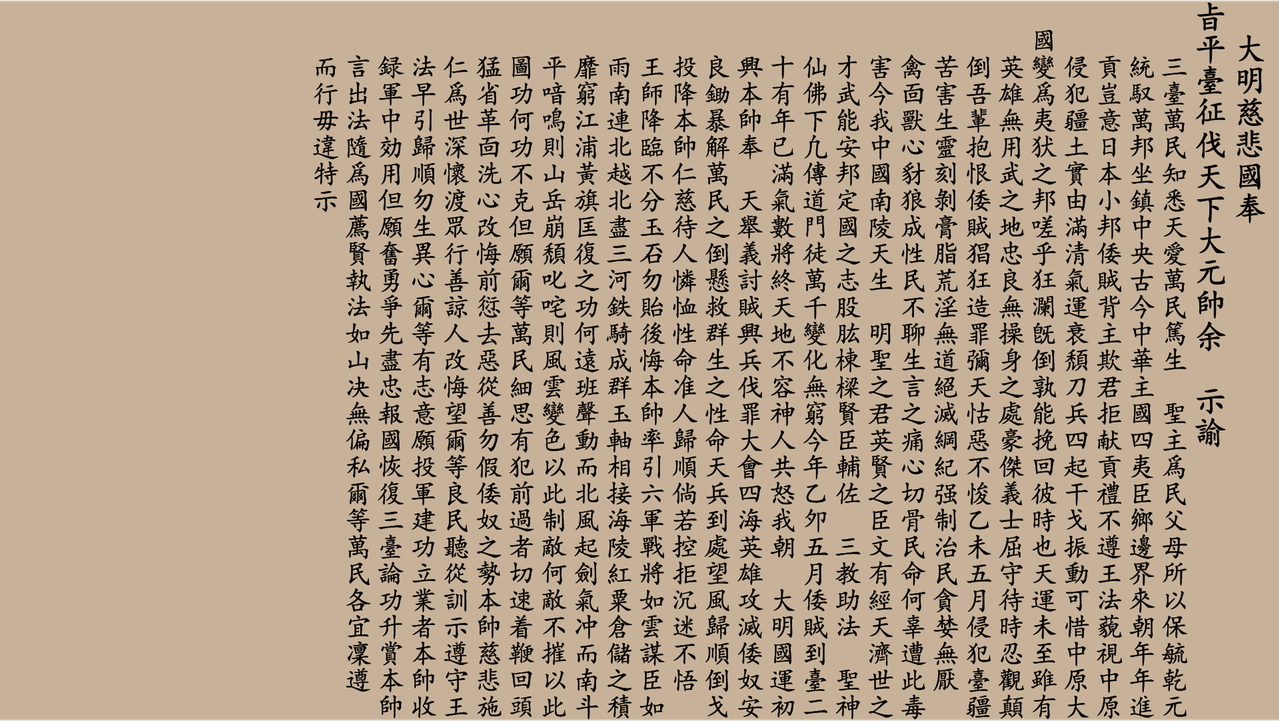 大明慈悲國奉
旨平臺征伐天下大元帥余　示諭
三臺萬民知悉天愛萬民篤生　聖主爲民父母所以保毓乾元
統馭萬邦坐鎮中央古今中華主國四夷臣鄉邊界來朝年年進
貢豈意日本小邦倭賊背主欺君拒献貢禮不遵王法藐視中原
侵犯疆土實由滿清氣運衰頹刀兵四起干戈振動可惜中原大
國變爲夷狄之邦嗟乎狂瀾旣倒孰能挽回彼時也天運未至雖有
英雄無用武之地忠良無操身之處豪傑義士屈守待時忍觀顛
倒吾輩抱恨倭賊猖狂造罪彌天怙惡不悛乙未五月侵犯臺疆
苦害生靈刻剝膏脂荒淫無道絕滅綱紀强制治民貪婪無厭
禽面獸心豺狼成性民不聊生言之痛心切骨民命何辜遭此毒
害今我中國南陵天生　明聖之君英賢之臣文有經天濟世之
才武能安邦定國之志股肱棟樑賢臣輔佐　三教助法　聖神
仙佛下凢傳道門徒萬千變化無窮今年乙夘五月倭賊到臺二
十有年已滿氣數將終天地不容神人共怒我朝　大明國運初
興本帥奉　天舉義討賊興兵伐罪大會四海英雄攻滅倭奴安
良鋤暴解萬民之倒懸救群生之性命天兵到處望風歸順倒戈
投降本帥仁慈待人憐恤性命准人歸順倘若控拒沉迷不悟
王師降臨不分玉石勿貽後悔本帥率引六軍戰將如雲謀臣如
雨南連北越北盡三河鉄騎成群玉軸相接海陵紅粟倉儲之積
靡窮江浦黃旗匡復之功何遠班聲動而北風起劍氣冲而南斗
平喑鳴則山岳崩頹叱咤則風雲變色以此制敵何敵不摧以此
圖功何功不克但願爾等萬民細思有犯前過者切速着鞭回頭
猛省革面洗心改悔前愆去惡從善勿假倭奴之勢本帥慈悲施
仁爲世深懷渡眾行善諒人改悔望爾等良民聽從訓示遵守王
法早引歸順勿生異心爾等有志意願投軍建功立業者本帥收
録軍中効用但願奮勇爭先盡忠報國恢復三臺論功升賞本帥
言出法隨爲國薦賢執法如山决無偏私爾等萬民各宜凜遵
而行毋違特示